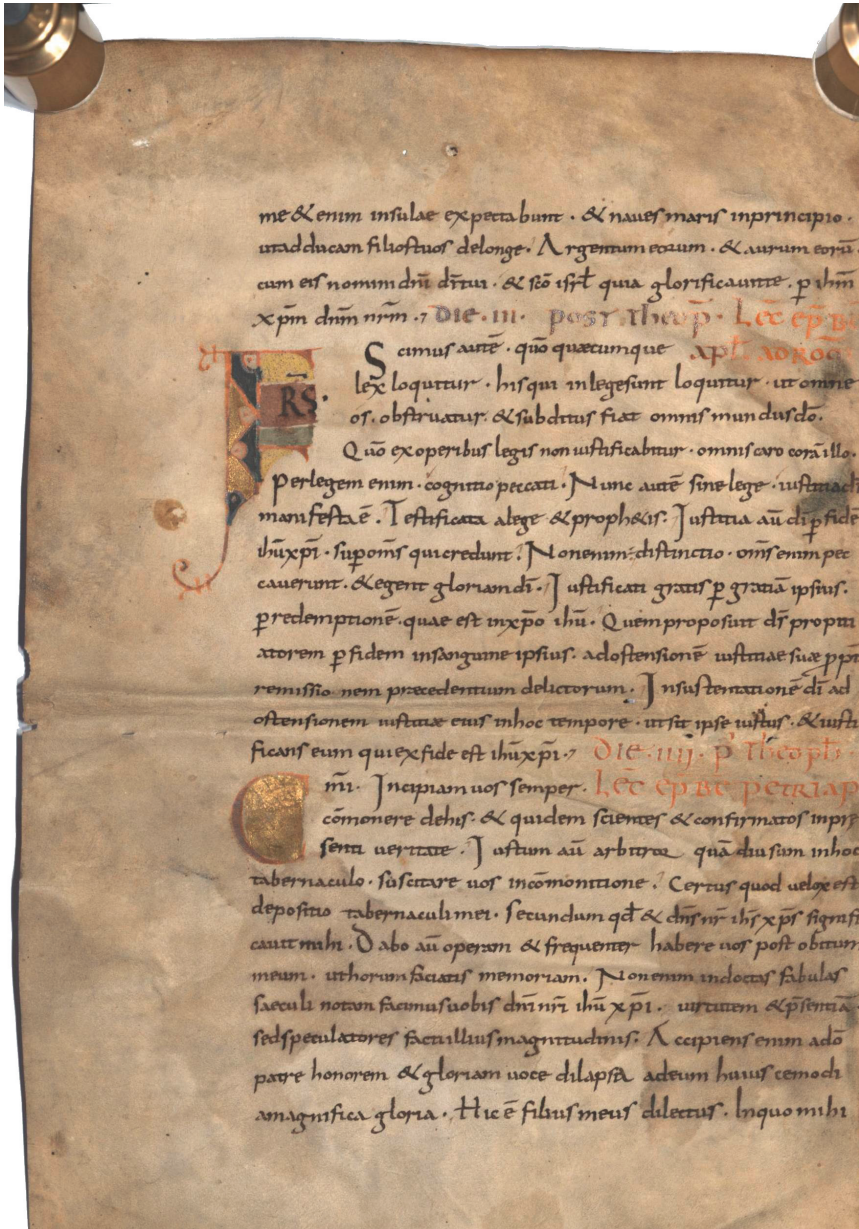 me & enim insulae expectabunt · & naues maris inprincipio ·
utadducam filiostuos delonge · Argentum eorum · & aurum eorū
cum eis nomini dn̄i dī tui · & sc̄o isrł quia glorificauitte · p̲ ihm̄
xp̄m dn̄m nr̄m · DIE · III · POST Theop̄ · Lec̄ ep̄ b
Scimus autē · quō quaecumque apłi ad Ro
FRS · lex loquitur · hisqui inlegesunt loquitur · ut omne
os · obstruatur · & subditus fiat omnis mundus dō ·
Quō exoperibus legis non iustificabitur · omnis caro corā illo ·
Perlegem enim · cognitio peccati · Nunc autē sine lege · iustitia dī
manifesta ē · Testificata alege & proph&is · Iustitia aū dī p̲ fidē
ihū xp̄i · sup̲ om̄s quicredunt · Nonenim distinctio · om̄s enim pec
cauerunt · & egent gloriam dī · Iustificati gratis p̲ gratiā ipsius ·
p̲redemptionē · quae est inxp̄o ihū · Quem proposuit ds̄ propiti
atorem p̲ fidem insanguine ipsius · adostensionē iustitiae suae p̲p̲
remissionem praecedentium delictorum · Insustentationē dī ad
ostensionem iustitiae eius inhoc tempore · utsit ipse iustus · & iusti
ficans eum quiexfide est ihū xp̄i · DIE · IIII · P̄ Theoph̄
Lec̄ ep̄ Be Petri ap
C mi · Incipiam uos semper ·
cōmonere dehis · & quidem scientes & confirmatos inpre
senti ueritate · Iustum aū arbitror quādiu sum inhoc
tabernaculo · suscitare uos incōmonitione · Certus quod uelox est
depositio tabernaculi mei · Secundum qđ & dn̄s nr̄ ihs̄ xp̄s signifi
cauit mihi · Dabo aū operam & frequenter habere uos post obitum
meum · uthorum faciatis memoriam · Nonenim indoctas fabulas
saeculi notam facimus uobis dn̄i nr̄i ihū xp̄i · uirtutem & p̄sentiā
sedspeculatores facti illius magnitudinis · Accipiens enim adō
patre honorem & gloriam uoce dilapsa adeum huiuscemodi
amagnifica gloria · Hic ē filius meus dilectus · Inquo mihi